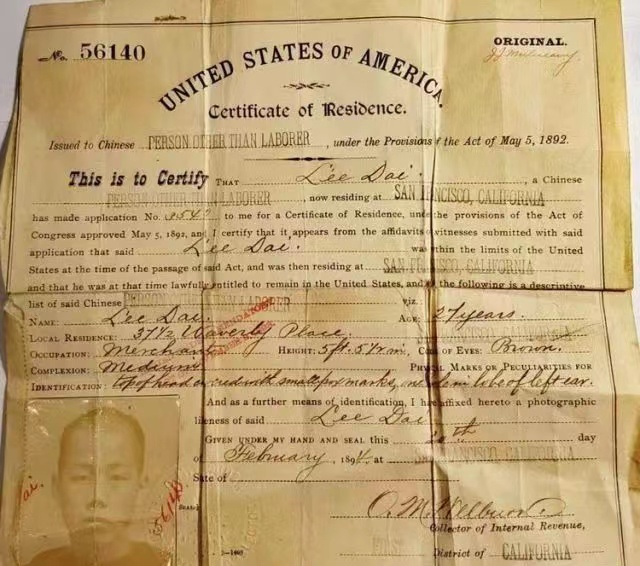 No. 56140
ORIGINAL.
UNITED STATES OF AMERICA.
Certificate of Residence.
Issued to Chinese PERSON OTHER THAN LABORER, under the Provisions of the Act of May 5, 1892.
This is to Certify THAT Lee Dai, a Chinese
PERSON OTHER THAN LABORER, now residing at SAN FRANCISCO, CALIFORNIA
has made application No. to me for a Certificate of Residence, under the provisions of the Act of
Congress approved May 5, 1892, and I certify that it appears from the affidavits witnesses submitted with said
application that said Lee Dai. was within the limits of the United
States at the time of the passage of said Act, and was then residing at SAN FRANCISCO, CALIFORNIA
and that he was at that time lawfully entitled to remain in the United States, and the following is a descriptive
list of said Chinese PERSON OTHER THAN LABORER viz.
NAME: Lee Dai. AGE: 27 years.
LOCAL RESIDENCE: 37½ Waverly Place.
OCCUPATION: Merchant HEIGHT: 5 ft. in. COLOR OF EYES: Brown.
COMPLEXION: Medium PHYSICAL MARKS OR PECULIARITIES FOR
IDENTIFICATION: top of head with small pox marks, lobe of left ear.
And as a further means of identification, I have affixed hereto a photographic
likeness of said Lee Dai
GIVEN UNDER MY HAND AND SEAL this 20th day
of February, 1894, at SAN FRANCISCO, CALIFORNIA.
State of
[SEAL.]
Collector of Internal Revenue,
District of CALIFORNIA
Dai.
56140